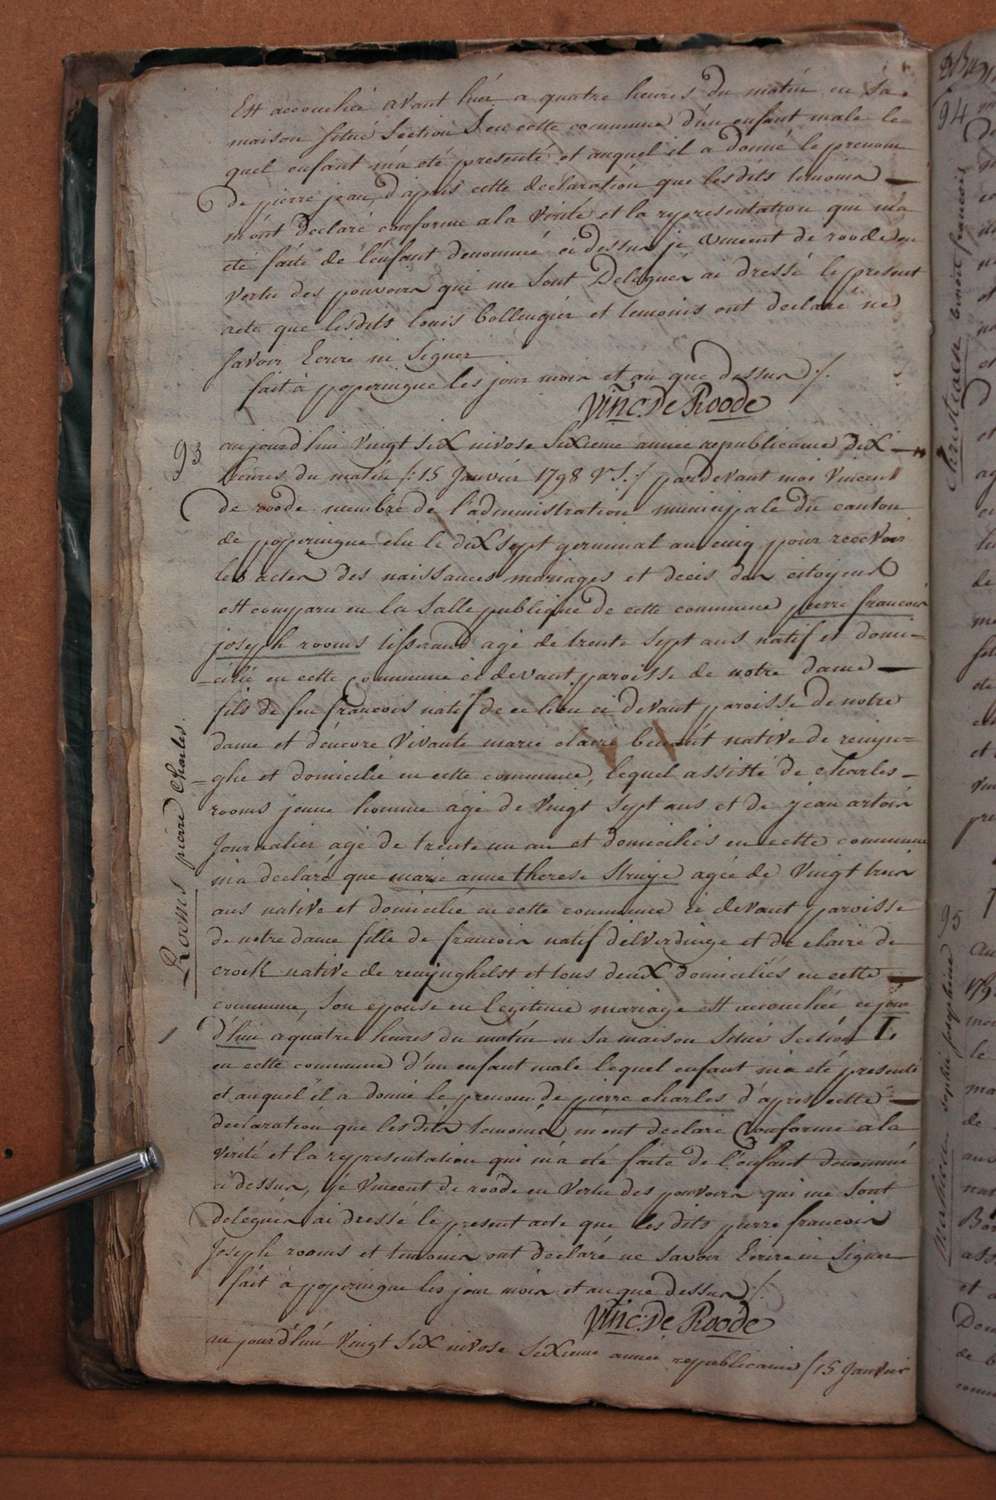 Est accouchée avant hier a quatre heures du matin en sa
maison situé Section I en cette commune d'un enfant male le-
quel enfant m'a eté presenté et auquel il a donné le prenom
de pierre jean, d'apres cette declaration que lesdits temoins
m'ont declaré conforme a la verité et la representation qui m'a
eté faite de l'enfant denommé ci dessus, je vincent de roode en
vertu des pouvoirs qui me sont deleguen ai dressé le present
acte que lesdits louis bollengier et temoins ont declaré ne
savoir Ecrire ni Signer
fait à poperingue les jour mois et an que dessus /.
Vinc. De Roode
93
aujourd'hui vingt six nivose sixieme annee republicaine dix
heures du matin /: 15 Janvier 1798 VS. / pardevant moi vincent
de roode membre de l'administration municipale du canton
de poperingue elu le dix sept germinal an cinq pour recevoir
les acten des naissances mariages et decés den citoyens
est comparu en la salle publique de cette commune pierre francois
joseph rooms tisserand agé de trente sept ans natif et domi-
-cilié en cette commune ci devant paroisse de notre dame
fils de feu francois natif de ce lieu ci devant paroisse de notre
dame et d'encore vivante marie claire benoit native de renyn=
=ghe et domicilié en cette commune, lequel assisté de charles
rooms jeune homme agé de vingt sept ans et de jean artoin
Journalier agé de trente un an et domiciliés en cette commune
m'a declaré que marie anne therese Struye agée de vingt trois
ans native et domicilié en cette commune ci devant paroisse
de notre dame fille de francois natif d'elverdinge et de claire de
crock native de reninghelst et tous deux domiciliés en cette
commune, son epouse en legitime mariage est accouchée ce jour
d'hui a quatre heures du matin en sa maison situé Section I,
en cette commune d'un enfant male lequel enfant m'a eté presenté
et auquel il a donné le prenom de pierre charles d'apres cette
declaration que lesdits temoins m'ont declaré conforme a la
verité et la representation qui m'a eté faite de l'enfant denommé
ci dessus, je vincent de roode en vertu des pouvoirs qui me sont
deleguen ai dressé le present acte que lesdits pierre francois
Joseph rooms et temoins ont declaré ne savoir Ecrire ni Signer
fait à poperingue les jour mois et an que dessus /.
Vinc. De Roode
aujourd'hui vingt six nivose sixieme annee republicaine / 15 Janvier
Rooms pierre Charles.
94
benoit francois
95
sophie